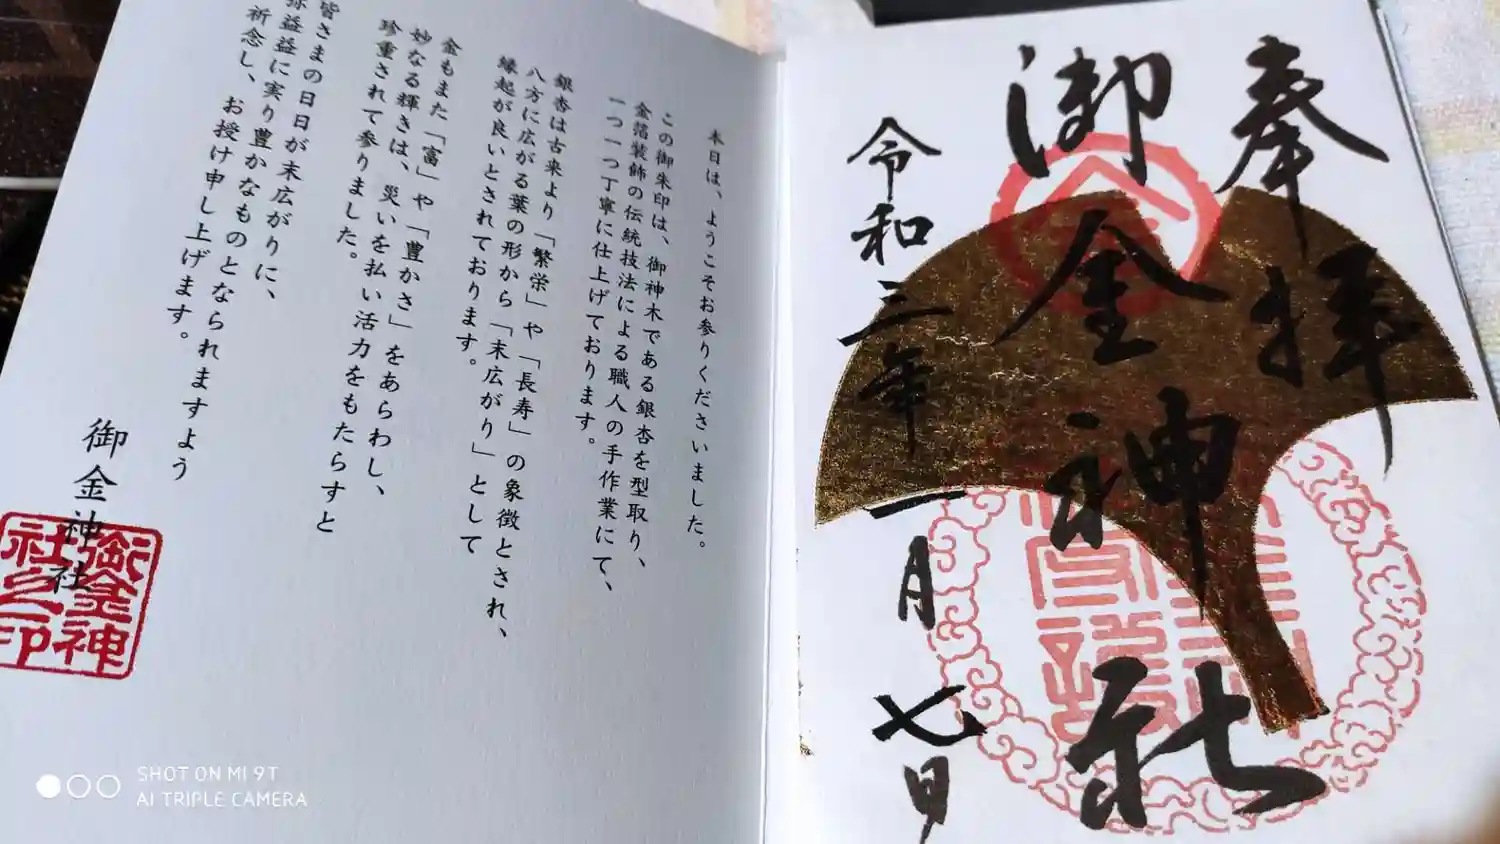 奉拝
御金神社
令和三年一月七日
本日は、ようこそお参りくださいました。
この御朱印は、御神木である銀杏を型取り、
金箔装飾の伝統技法による職人の手作業にて、
一つ一つ丁寧に仕上げております。
銀杏は古来より「繁栄」や「長寿」の象徴とされ、
八方に広がる葉の形から「末広がり」として
縁起が良いとされております。
金もまた「富」や「豊かさ」をあらわし、
妙なる輝きは、災いを払い活力をもたらすと
珍重されて参りました。
皆さまの日日が末広がりに、
弥益益に実り豊かなものとなられますよう
祈念し、お授け申し上げます。
御金神社
御金神
社之印
SHOT ON MI 9T
AI TRIPLE CAMERA